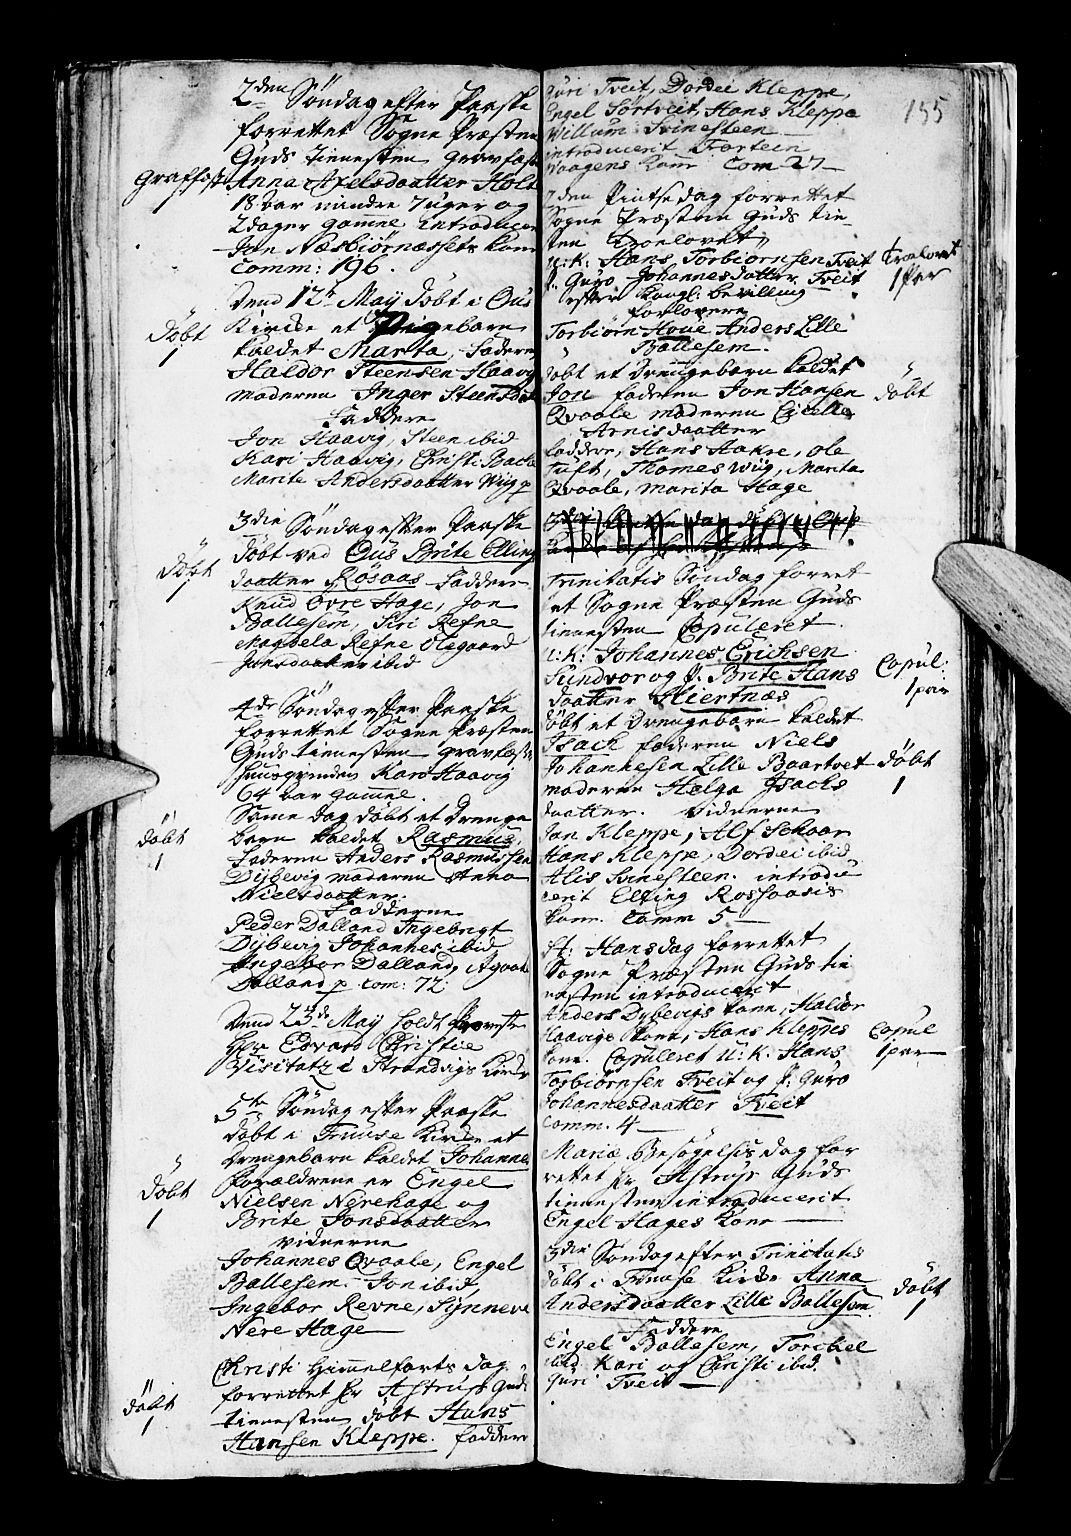 2den Söndag efter Paaske
forrettet Sogne Præsten
Guds tienesten gravfæst
Graffæst Anna Axelsdaatter Holt
18 aar mindre 7 uger og
2 dager gamle introducer
Jon Næsbiörnæssets kone
Comm: 196.
Dend 12te May döbt i Ous
Kirke et Pigebarn
Döbt
1
kaldet Marta, Faderen
Haldor Steensen Haavig
moderen Inger Steensdat
Faddere
Jon Haavig, Steen ibid
Kari Haavig, Christi Bache
Marite Andersdaatter Wiig p
3die Söndag efter Paaske
döbt ved Ous Brite Elling
Döbt
1
daatter Rosaas Faddere
Knud Ovre Hage, Jon
Ballesem, Siri Refne
Magdela Refne Olegaard
Jansdaatter ibid
4de Söndag efter Paaske
forrettet Sogne Præsten
Guds tienesten gravfæste
huusqvinden Kari Haavig
64 aar gamel.
Same dag döbt et Drenge
döbt
1
barn kaldet Rasmus,
Faderen Anders Rasmussen
Dybevig moderen Anna
Nielsdaatter
Fadderne
Peder Dalland Ingebrigt
Dybevig Johannes ibid
Ingebor Dalland, Agaata
Dalland p com: 72
Dend 23de May holdt Provste
Hr Edvard Christie
Visitatz i Strandvigs Kirke
5te Söndag efter Paaske
döbt i Fruuse Kirke et
Drengebarn kaldet Johannes
Döbt
1
forældrene er Engel
Nielsen Nerehage og
Brite Jonsdaatter
vidnerne
Johannes Qvaale, Engel
Ballesem. Jon ibid,
Ingebor Revne, Synneve
Nere Hage
Christi Himmelfarts dag
forrettet Hr Astrup Guds
döbt
1
tienesten döbt Hans
Hansen Kleppe. faddere
155
Guri Tveit, Dordei Kleppe,
Engel Sörtveit, Hans Kleppe
Willum Svinesteen
introducerit Torstein
Waagens kone Com 27
2den Pintsedag forrettet
Sogne Præsten Guds tie
sten Troelovet
U: K: Hans Torbiörnsen Tveit
P: Guro Johannesdatter Tveit
efter kongl: bevilling
Troelovet
1 Par
forlovere
Torbiörn Houe Anders Lille
Ballesem.
döbt et Drengebarn kaldet
Jon faderen Jon Hansen
döbt
Qvaale moderen Cicelle
Arnisdaatter
faddere, Hans Aakre, Ole
Tuft, Thomes Wiig, Marita
Qvaale, Marita Hage
Trinitatis Söndag forret
tet Sogne Præsten Guds
tienesten Copuleret
U: K: Johannes Erichsen
Sundvor og P: Brite Hans
Copul:
1 par
daatter Hiertnæs
döbt et Drengebarn kaldet
Isach faderen Niels
Johannesen Lille Baartvet
Döbt
1
moderen Helga Isachs
daatter. Vidnerne
Jan Kleppe, Alf Schaar
Hans Kleppe, Dordei ibid
Alis Svinesteen. introdu
cerit Elling Rossaasis
kone. Comm 5
St: Hansdag forrettet
Sogne Præsten Guds tie
nesten introducerit
Anders Dybevigs kone, Haldor
Haavigs kone, Hans Kleppes
Copul
1 par
kone. Copuleret U: K: Hans
Torbiörnsen Tveit og P: Guro
Johannesdaatter Tveit
Comm. 4
Mariæ Besögelsis dag for
rettet Hr Astrup Guds
tienesten introducerit
Engel Hages kone
3die Söndag efter Trinitatis
döbt i Fruuse Kirke Anna
döbt
1
Andersdaatter Lille Ballesem
Faddere
Engel Ballesem, Torckel
ibid Kari og Christi ibid.
Guri Tveit